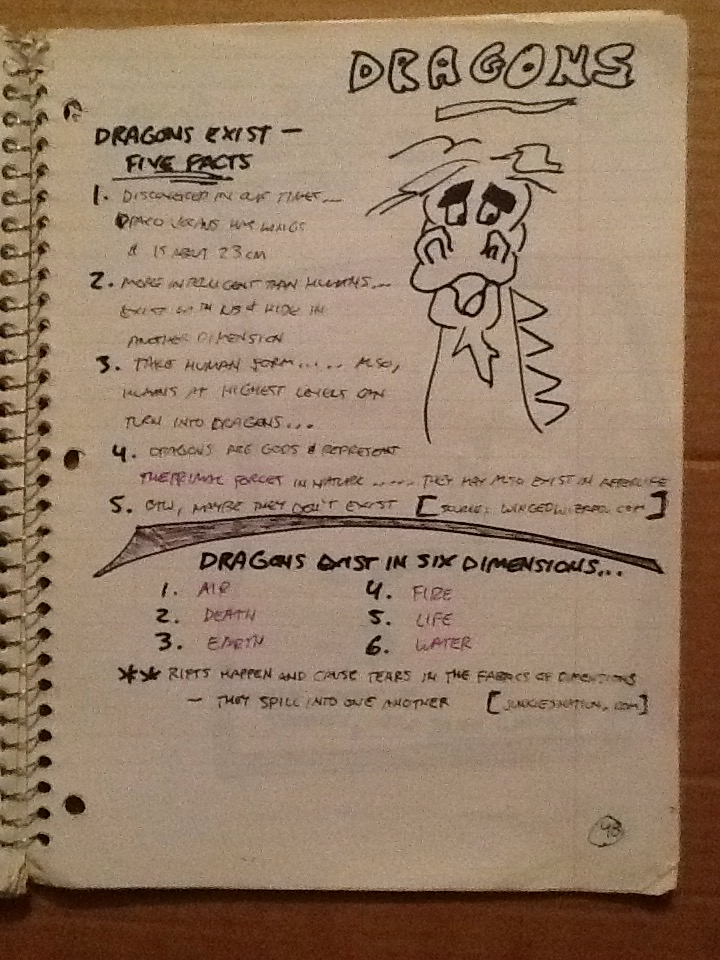 DRAGONS
DRAGONS EXIST —
FIVE FACTS
1. DISCOVERED IN OUR TIMES...
DRACO VOLANS HAS WINGS
& IS ABOUT 23 CM
2. MORE INTELLIGENT THAN HUMANS...
EXIST WITH US & HIDE IN
ANOTHER DIMENSION
3. TAKE HUMAN FORM..... ALSO,
HUMANS AT HIGHEST LEVELS CAN
TURN INTO DRAGONS...
4. DRAGONS ARE GODS & REPRESENT
THE PRIMAL FORCES IN NATURE ..... THEY MAY ALSO EXIST IN AFTERLIFE
5. BTW, MAYBE THEY DON'T EXIST [SOURCE: WINGEDWIZARD.COM]
DRAGONS EXIST IN SIX DIMENSIONS...
1. AIR 4. FIRE
2. DEATH 5. LIFE
3. EARTH 6. WATER
** RIFTS HAPPEN AND CAUSE TEARS IN THE FABRICS OF DIMENSIONS
— THEY SPILL INTO ONE ANOTHER